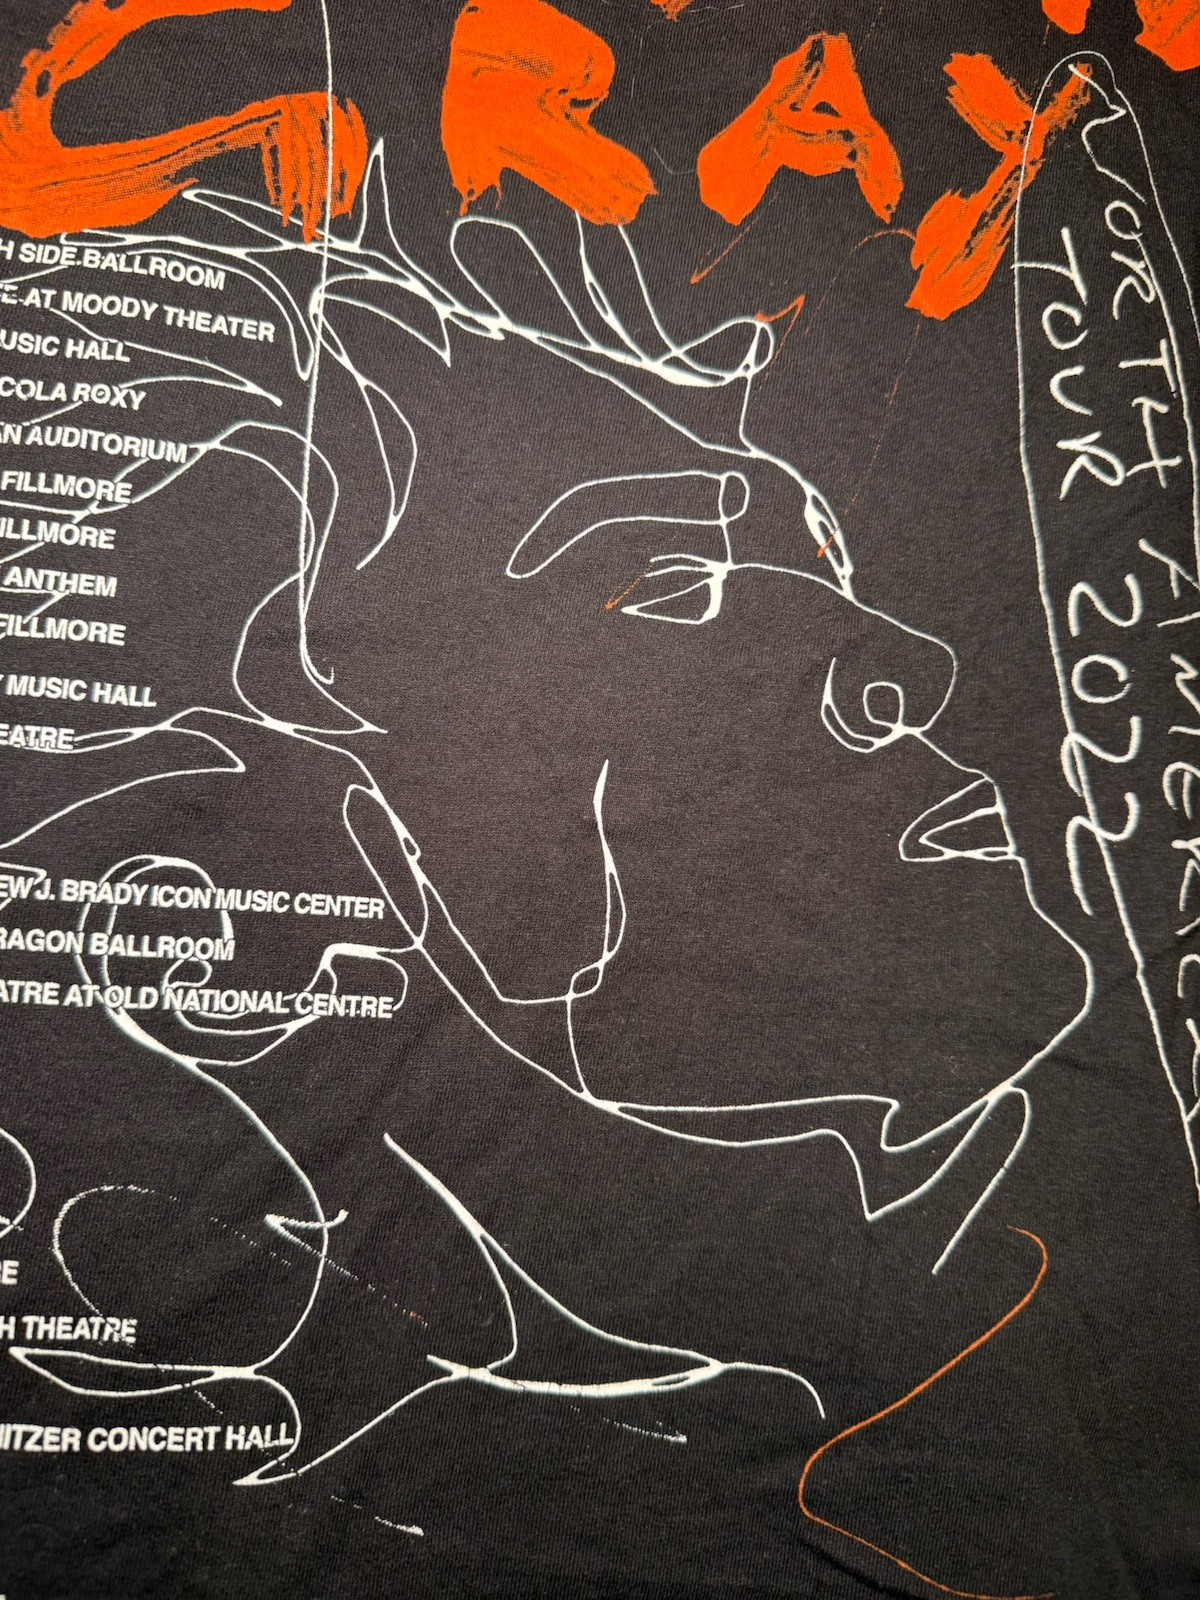 GRAY
H SIDE BALLROOM
E AT MOODY THEATER
USIC HALL
COLA ROXY
AN AUDITORIUM
FILLMORE
ILLMORE
ANTHEM
FILLMORE
Y MUSIC HALL
EATRE
EW J. BRADY ICON MUSIC CENTER
RAGON BALLROOM
ATRE AT OLD NATIONAL CENTRE
RE
H THEATRE
NITZER CONCERT HALL
NORTH AMERICA
TOUR 2022